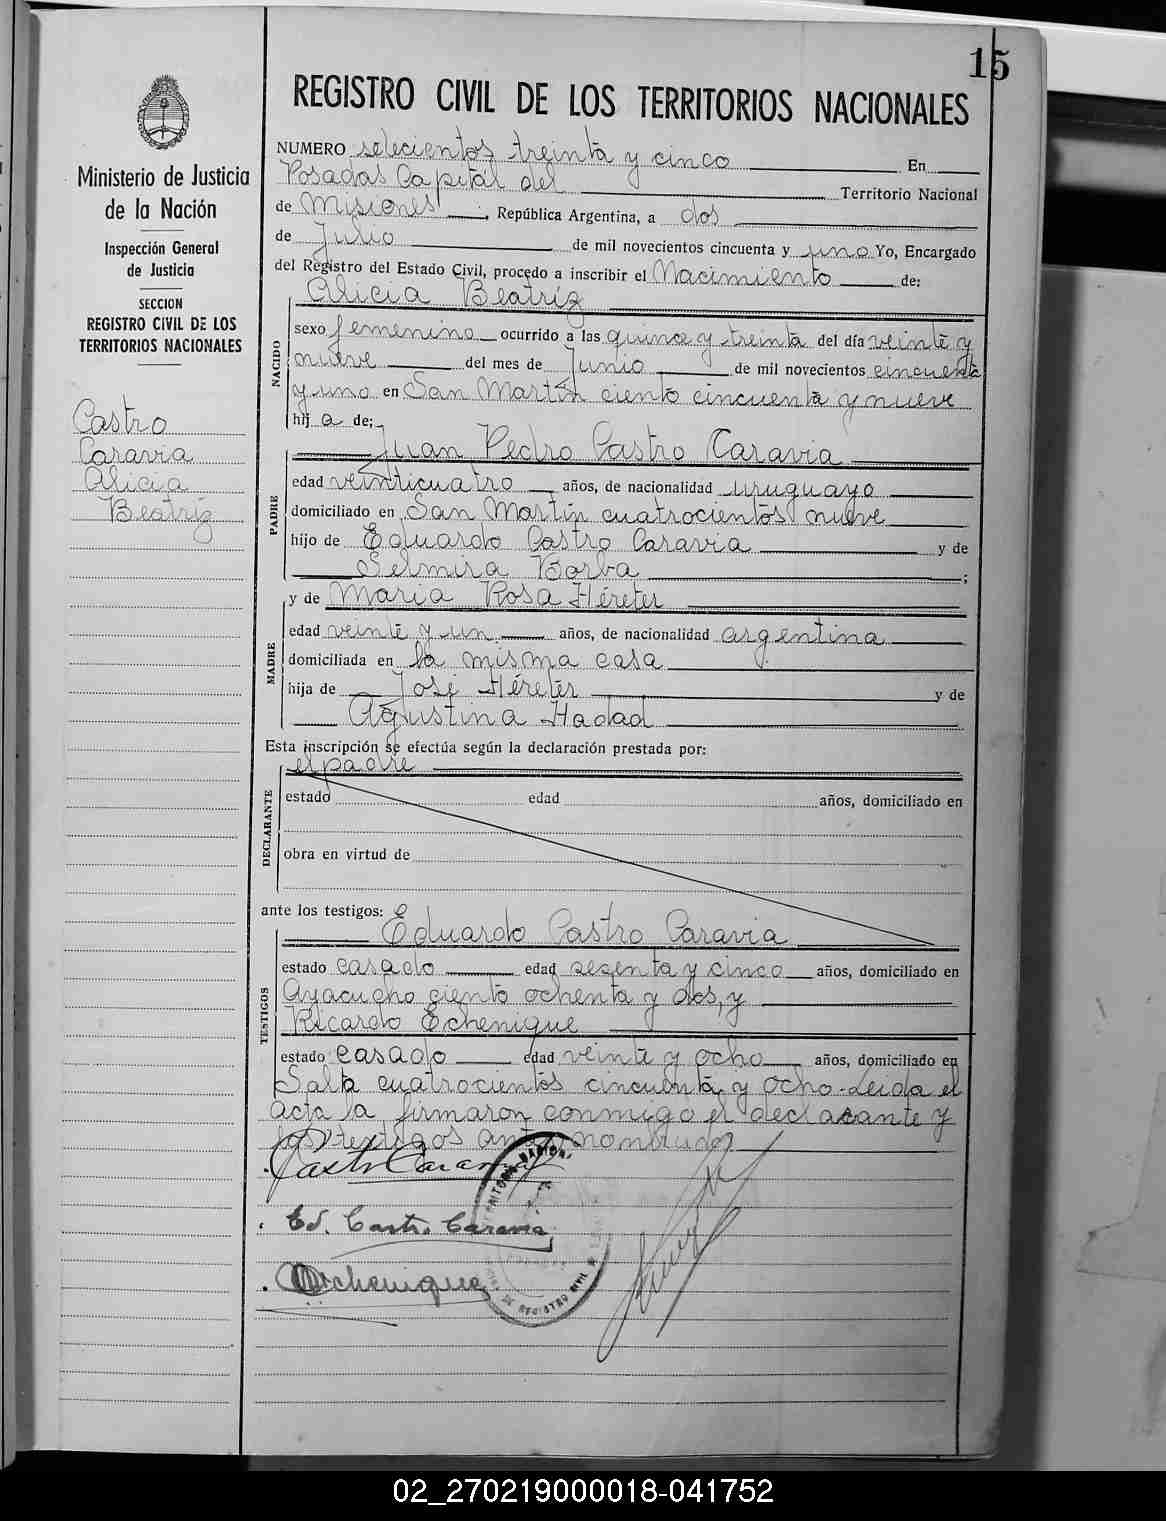 15
REGISTRO CIVIL DE LOS TERRITORIOS NACIONALES
Ministerio de Justicia
de la Nación
Inspección General
de Justicia
SECCION
REGISTRO CIVIL DE LOS
TERRITORIOS NACIONALES
Castro
Caravia
Alicia
Beatriz
NUMERO setecientos treinta y cinco En
Posadas Capital del Territorio Nacional
de Misiones, República Argentina, a dos
de Julio de mil novecientos cincuenta y uno Yo, Encargado
del Registro del Estado Civil, procedo a inscribir el Nacimiento de:
Alicia Beatriz
NACIDO
sexo femenino ocurrido a las quince y treinta del día veinte y
nueve del mes de Junio de mil novecientos cincuenta
y uno en San Martín ciento cincuenta y nueve
hij a de;
Juan Pedro Castro Caravia
PADRE
edad veinticuatro años, de nacionalidad uruguayo
domiciliado en San Martín cuatrocientos nueve
hijo de Eduardo Castro Caravia y de
Selmira Borba ;
y de María Rosa Héreter
MADRE
edad veinte y un años, de nacionalidad argentina
domiciliada en la misma casa
hija de José Héreter y de
Agustina Hadad
Esta inscripción se efectúa según la declaración prestada por:
el padre
DECLARANTE
estado edad años, domiciliado en
obra en virtud de
ante los testigos:
Eduardo Castro Caravia
TESTIGOS
estado casado edad sesenta y cinco años, domiciliado en
Ayacucho ciento ochenta y dos, y
Ricardo Echenique
estado casado edad veinte y ocho años, domiciliado en
Salta cuatrocientos cincuenta y ocho. Leida el
acta la firmaron conmigo el declarante y
los testigos antes nombrados
Castro Caravia
Ed. Castro Caravia
Echenique
REGISTRO CIVIL
02_270219000018-041752